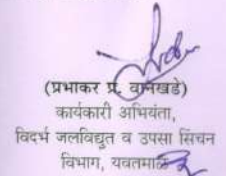 (प्रभाकर प्र. वानखडे)
कार्यकारी अभियंता,
विदर्भ जलविद्युत व उपसा सिंचन
विभाग, यवतमाळ